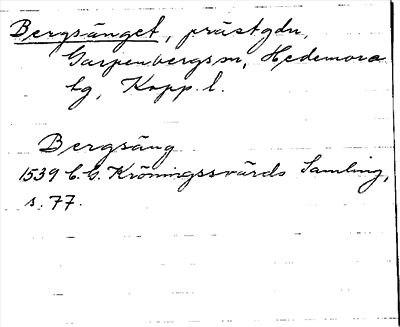 Bergsänget, prästgdn,
Garpenbergs sn, Hedemora
tg, Kopp. l.
Bergsäng
1539 C. G. Kröningssvärds Samling,
s. 77.